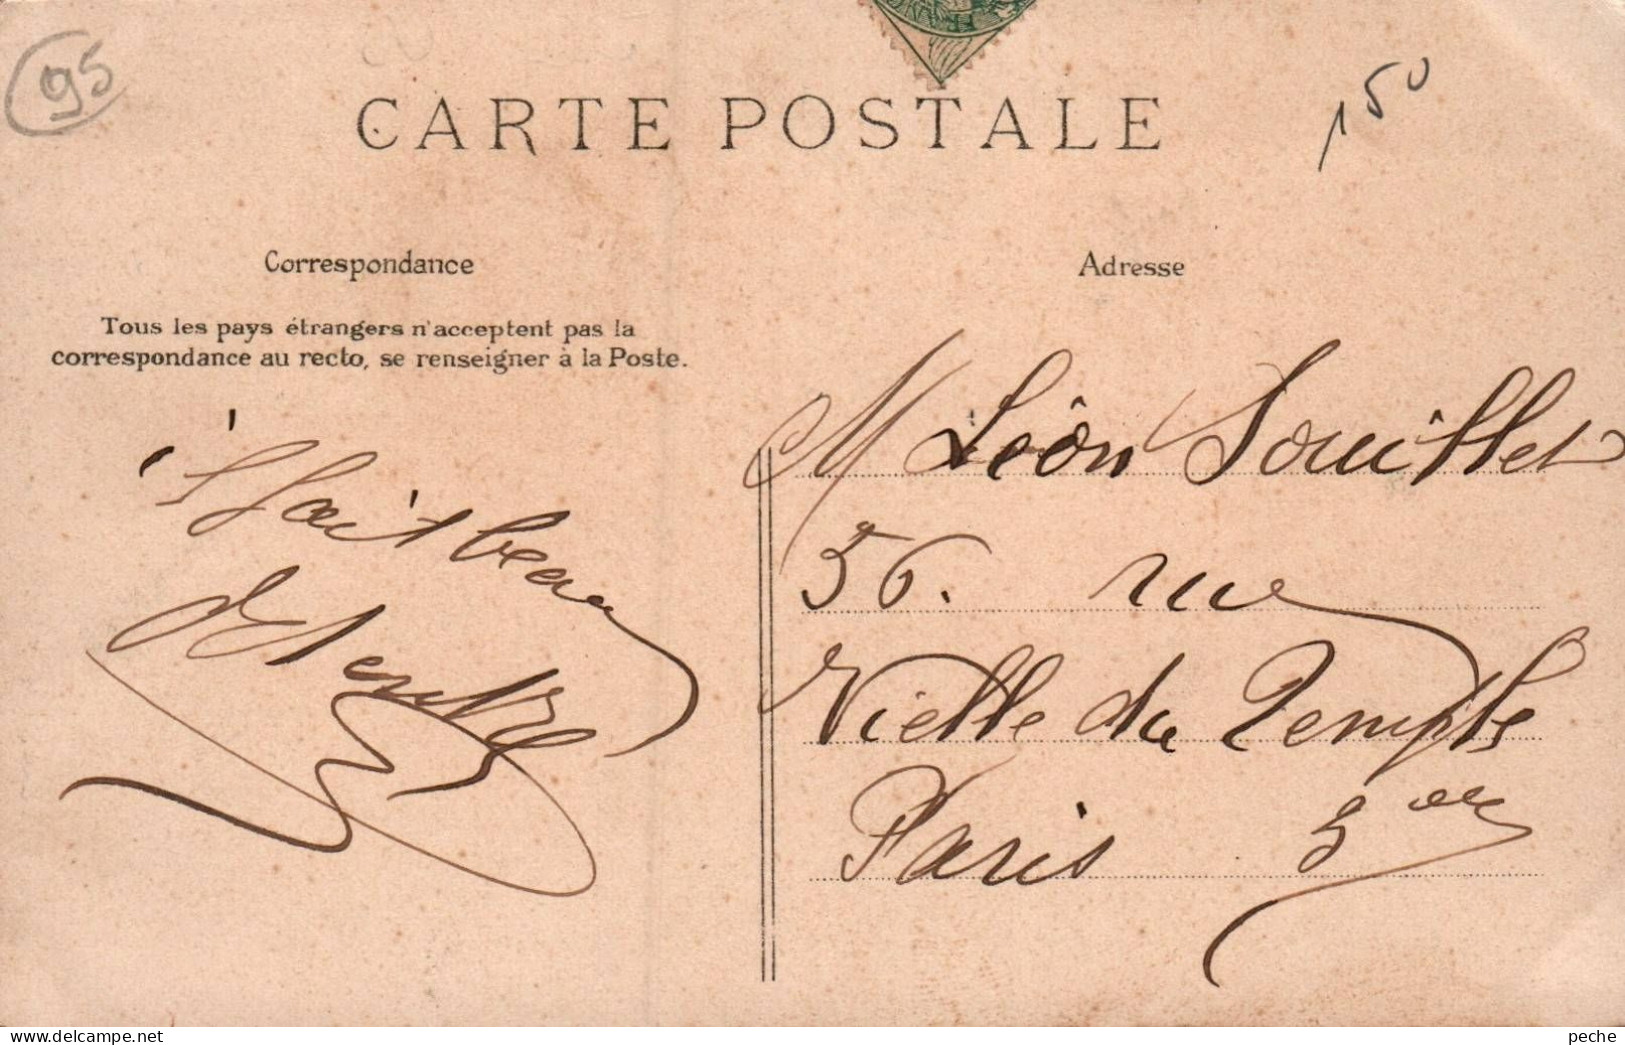 95
CARTE POSTALE
150
Correspondance
Tous les pays étrangers n'acceptent pas la
correspondance au recto, se renseigner à la Poste.
fait beau
Adresse
M Léon Souillet
56. rue
Vielle du Temple
Paris 3
delcampe.net
peche